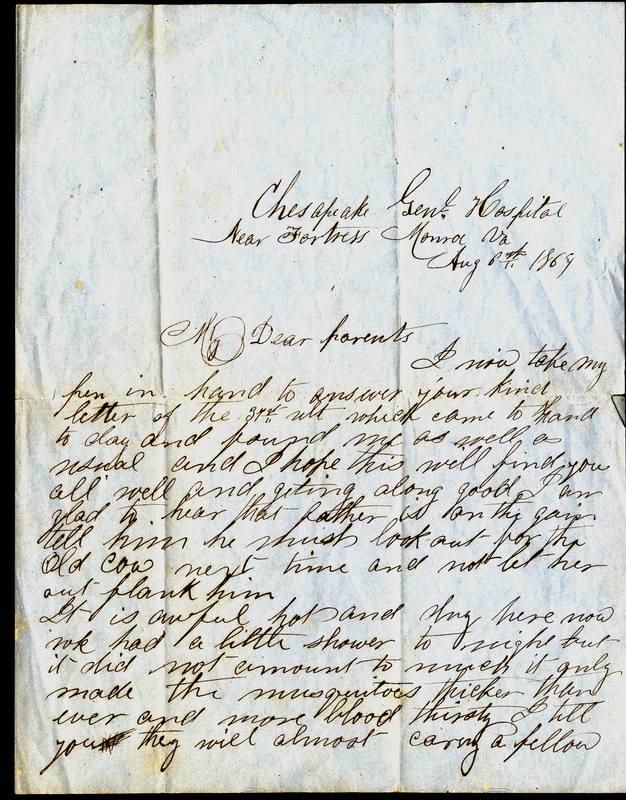 Chesapeake Genl. Hospital
Near Fortress Monroe Va
Aug 6th. 1864
My Dear parents
I now take my
pen in hand to answer your kind
letter of the 3rd. ult which came to hand
to day and found me as well as
usual and I hope this will find you
all well and geting along good I am
glad to hear that father is on the gain
tell him he must look out for the
old cow next time and not let her
out flank him
It is awful hot and dry here now
we had a little shower to night but
it did not amount to much it only
made the musquitoes thicker than
ever and more blood thirsty I tell
you they will almost carry a fellow